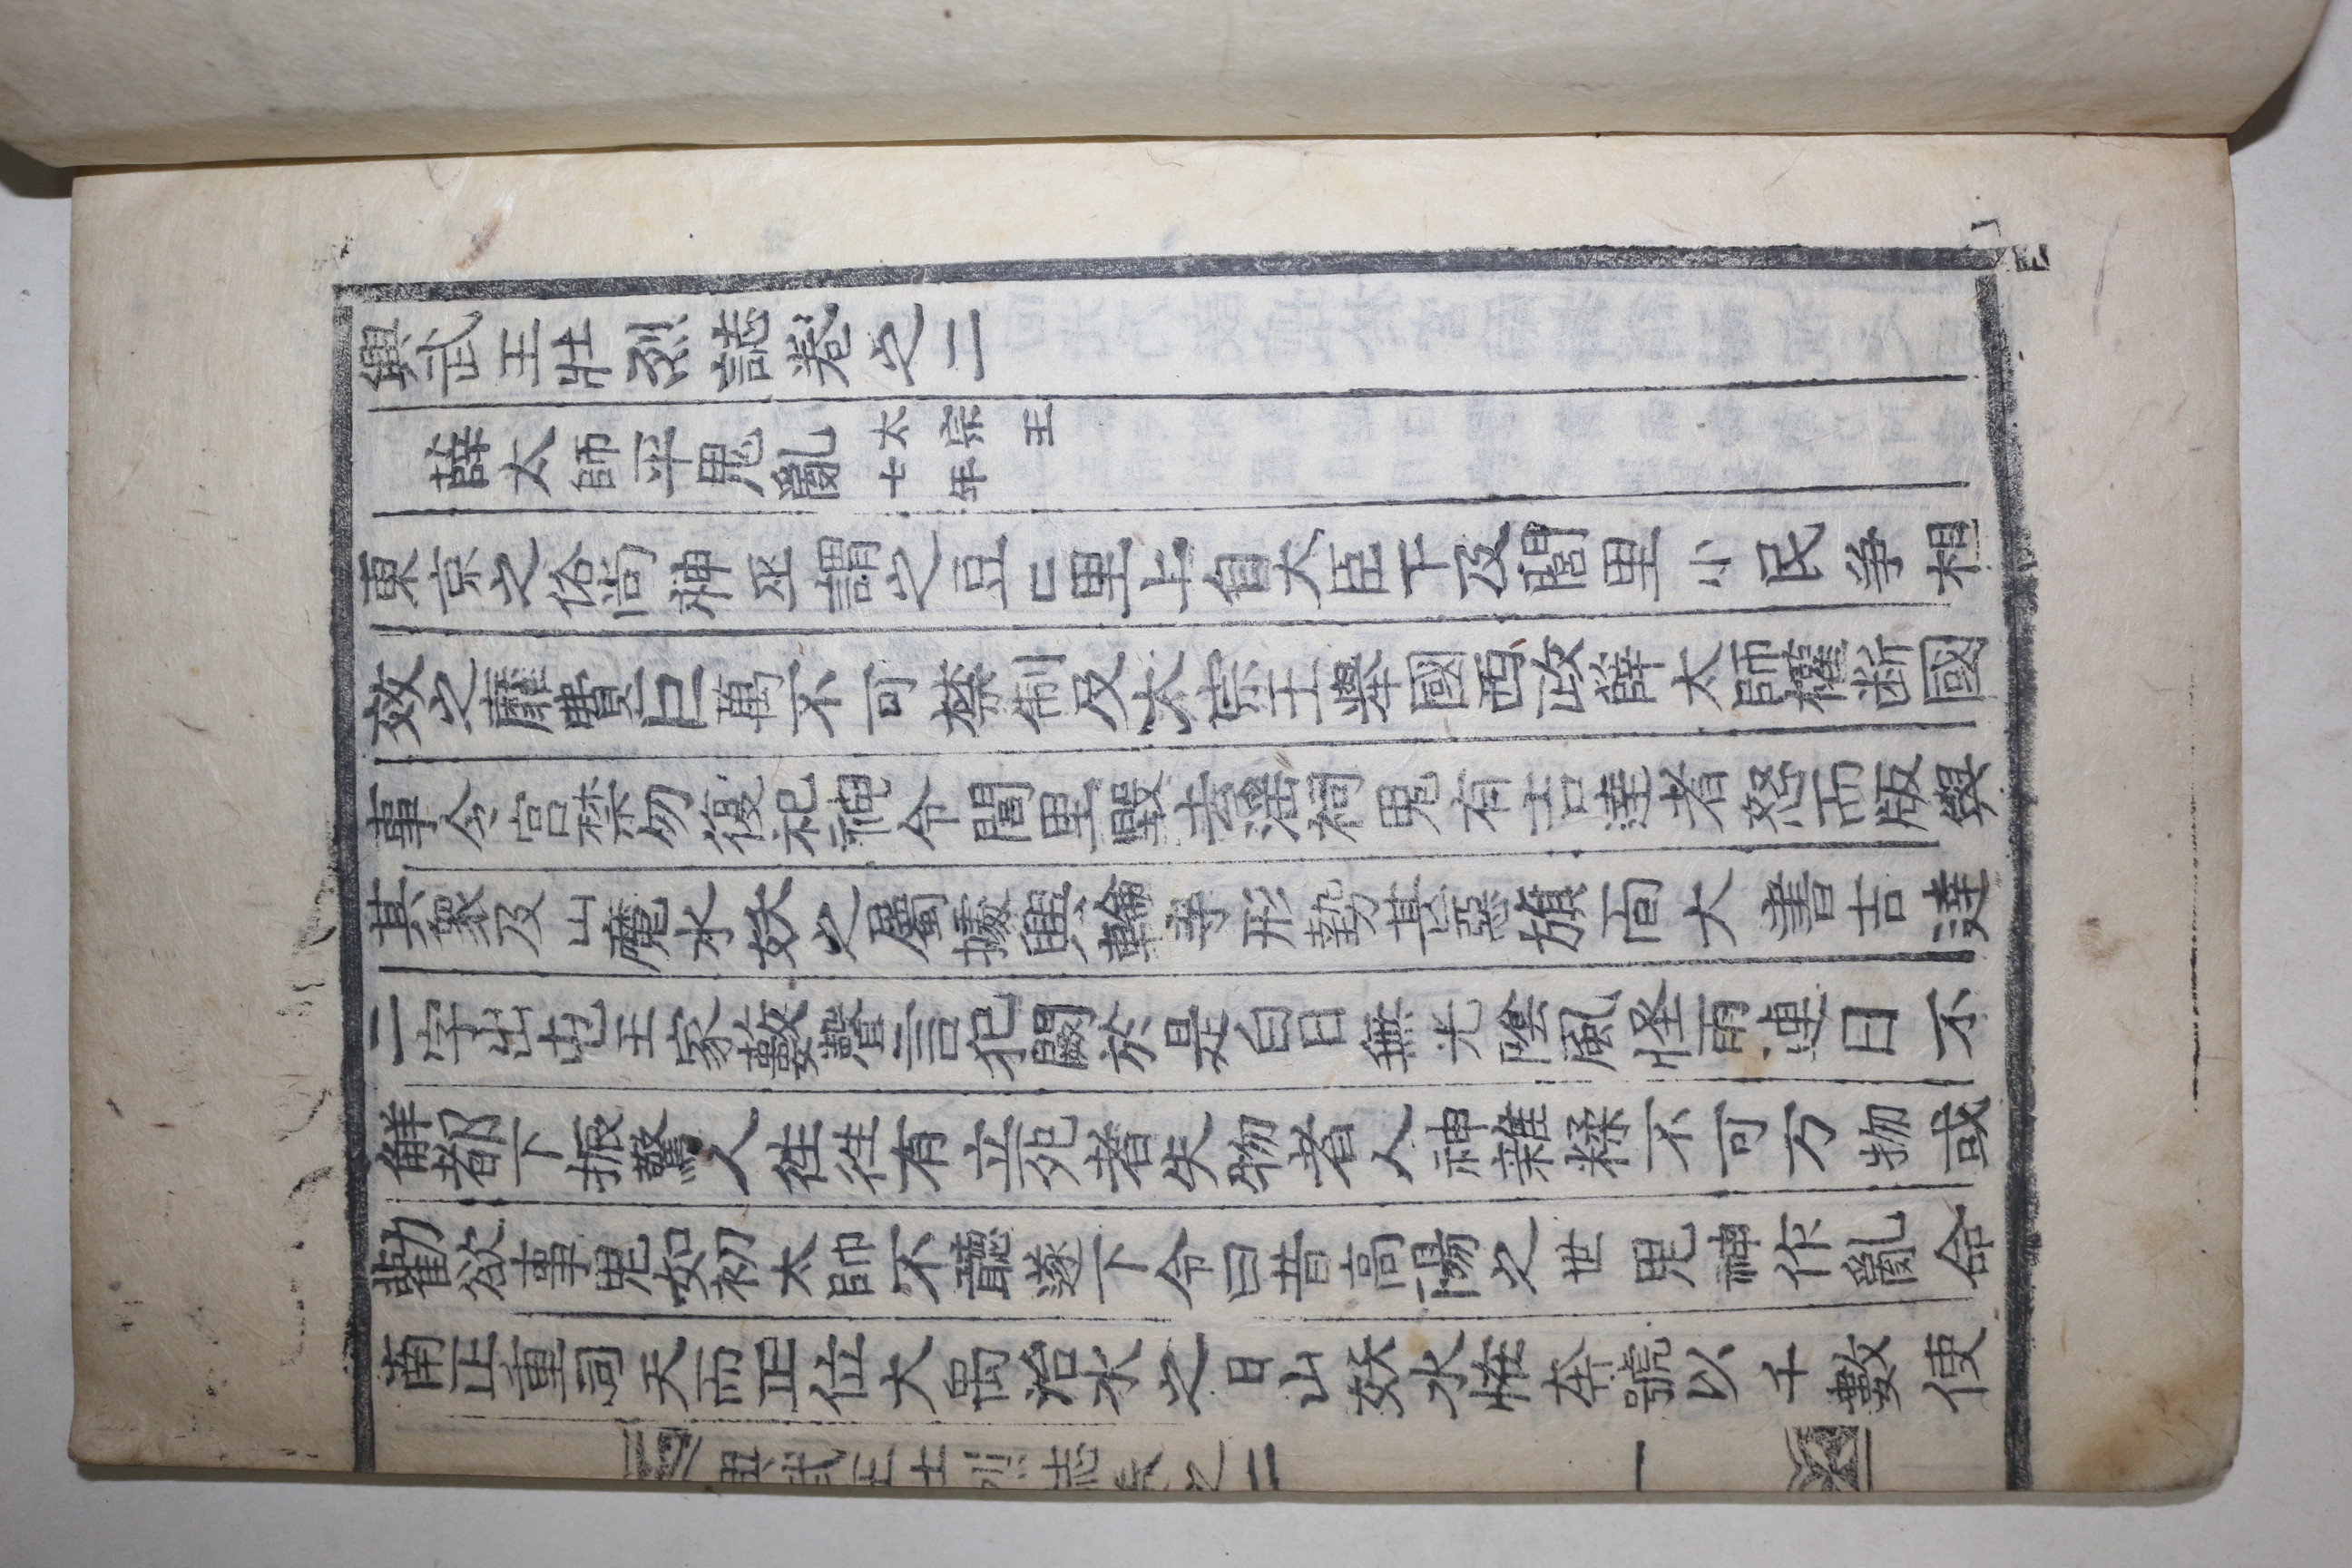 興武王壯烈誌卷之二
薛太師平鬼亂 太宗王七年
東京之俗尚神巫謂之豆亡里上自大臣下及閭里小民爭相
效之靡費巨萬不可禁制及太宗王擧國西政薛太師權斷國
事令宮禁勿復祀神令閭里毀去淫祠鬼有吉達者怒而版與
其衆及山魔水妖之屬據興輪寺形勢甚惡旗高大書吉達
二字出屯王家藪聲言犯闕於是白日無光陰風怪雨連日不
解都下振驚人往往有立死者失物者人神雜糅不可方物或
勸欲事鬼如初太師不聽遂下令曰昔高陽之世鬼神作亂命
南正重司天而正位大禹治水之日山妖水怪奔號以千數使
興武王壯烈誌卷之二 一